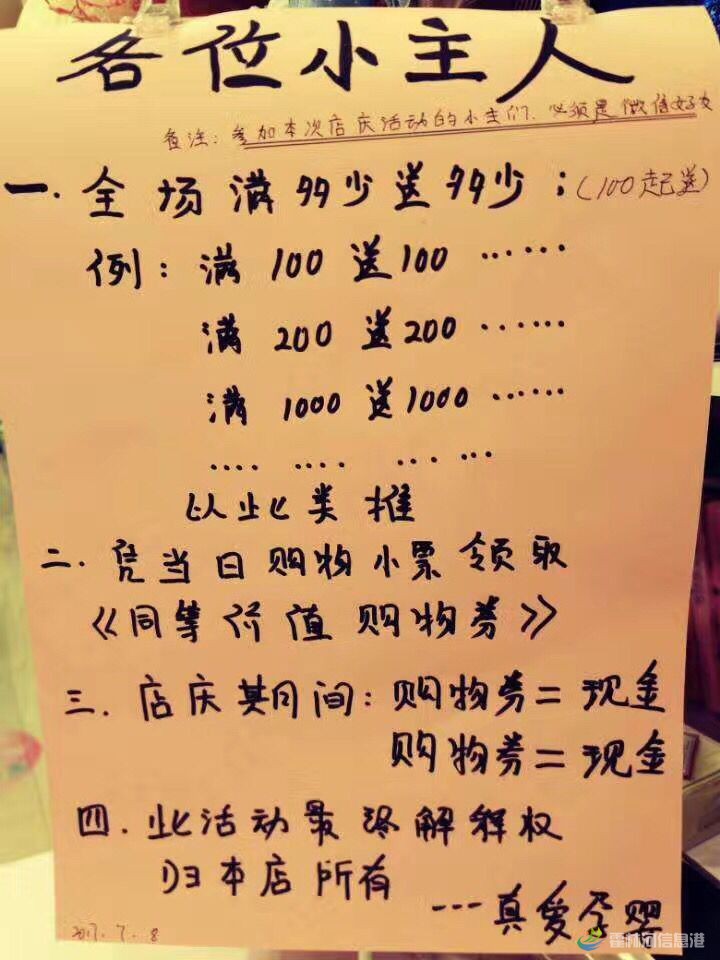 各位小主人
备注：参加本次店庆活动的小主们，必须是微信好友
一．全场满多少送多少；（100起送）
例：满100送100……
满200送200……
满1000送1000……
…. …. … …
以此类推
二．凭当日购物小票领取
《同等价值购物券》
三．店庆期间：购物券＝现金
购物券＝现金
四．此活动最终解释权
归本店所有
---真爱孕婴
2017.7.8
霍林河信息港